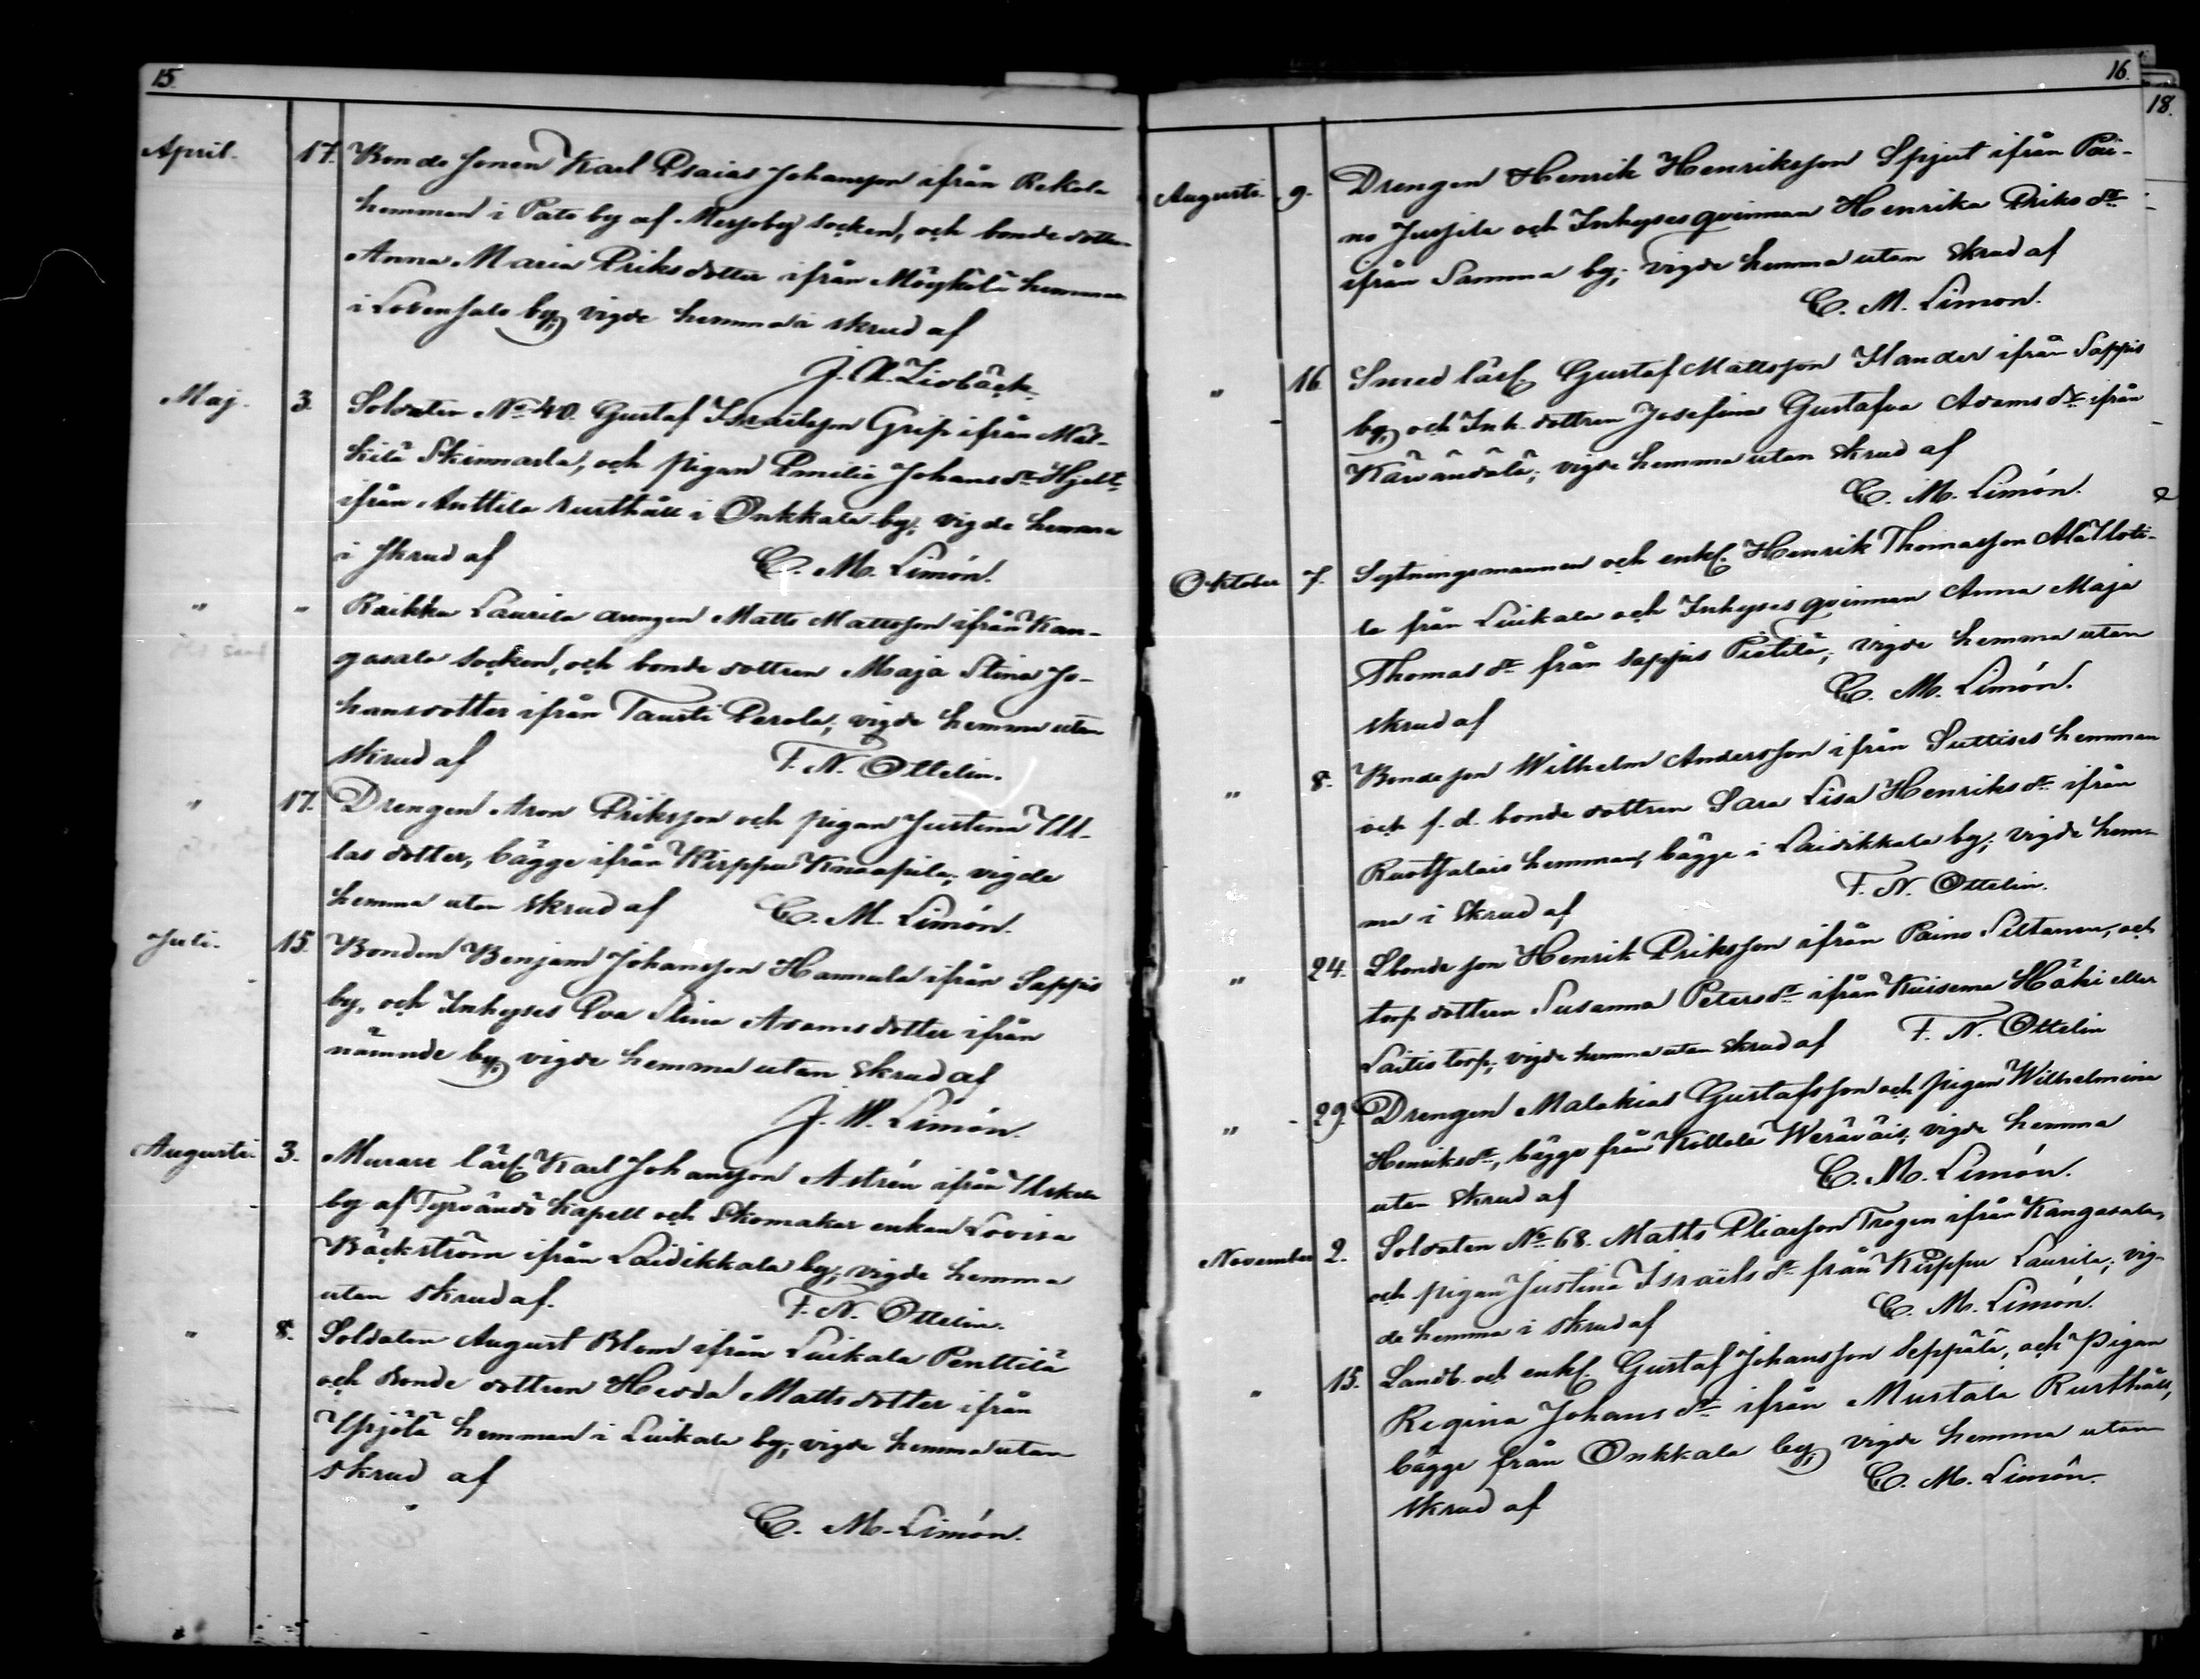 15.
April. 17. Bonde sonen Karl Esaias Johansson ifrån Rekola
hemman i Pato by af Messoby socken, och bonde dottern
Anna Maria Eriksdotter ifrån Möykölä hemman
i Lovensalo by; vigde hemma i skrud af
J. A. Lievbäck.
Maj. 3. Soldaten No 40. Gustaf Israëlsson Grip ifrån Mäl-
kilä Skinnarla, och pigan Emilia Johans dr Hjelt,
ifrån Anttila rusthåll i Onkkala by; vigde hemma
i skrud af C. M. Limón.
" " Raikku Laurila drengen Matts Mattsson ifrån Kan-
gasala socken, och bonde dottren Maja Stina Jo-
hansdotter ifrån Tausti Perola; vigde hemma utan
skrud af F. N. Ottelin.
" 17. Drengen Aron Eriksson och pigan Justina Ul-
las dotter, bägge ifrån Kirppu Knaapila; vigde
hemma utan skrud af C. M. Limón.
Juli. 15. Bonden Benjam Johansson Hannula ifrån Sappis
by, och Inhyses Eva Stina Adamsdotter ifrån
nämnde by; vigde hemma utan skrud af
J. W. Limón.
Augusti. 3. Murare lärl. Karl Johansson Astrén ifrån Uskela
by af Tyrvändö kapell och Skomakar enkan Lovisa
Bäckström ifrån Laidikkala by; vigde hemma
utan skrud af. F. N. Ottelin.
" 8. Soldaten August Blom ifrån Luikala Penttilä
och Bonde dottren Hedda Matts dotter ifrån
Yspjölä hemman i Luikala by; vigde hemma utan
skrud af
C. M. Limón.
16.
18.
Augusti. 9. Drengen Henrik Henriksson Spjut ifrån Pai-
no Jussila och Inhyses qvinnan Henrika Eriks dr
ifrån Samma by; vigde hemma utan skrud af
C. M. Limon.
" 16. Smed lärl. Gustaf Mattsson Ilander ifrån Sappis
by, och Inh. dottren Josefina Gustafva Adams dr ifrån
Kärvändälä; vigde hemma utan skrud af
C. M. Limón.
Oktober 7. Sytningsmannen och enkl. Henrik Thomasson Alaˮlloti-
la från Luikala och Inhyses qvinnan Anna Maja
Thomas dr från Sappis Pietilä; vigde hemma utan
skrud af C. M. Limón.
" 8. Bondeson Wilhelm Andersson ifrån Suttises hemman
och f. d. bonde dottren Sara Lisa Henriks dr ifrån
Ruotsalais hemman, bägge i Laidikkala by; vigde hem-
ma i skrud af F. N. Ottelin.
" 24. Lbonde son Henrik Eriksson ifrån Paino Siltanen, och
torp dottren Susanna Peters dr ifrån Kuisema Häki eller
Laitis torp; vigde hemma utan skrud af F. N. Ottelin
" 29. Drengen Malakias Gustafsson och pigan Wilhelmina
Henriks dr, bägge från Kollola Weräväis; vigde hemma
uten skrud af C. M. Limón.
November 2. Soldaten No 68. Matts Eliasson Trogen ifrån Kangasala,
och pigan Justina Israëls dr från Kirppu Laurila; vig-
de hemma i skrud af C. M. Limón.
" 15. Landb. och enkl. Gustaf Johansson Seppälä, och Pigan
Regina Johans dr ifrån Mustala Rusthåll,
bägge från Onkkala by; vigde hemma utan
skrud af C. M. Limón.